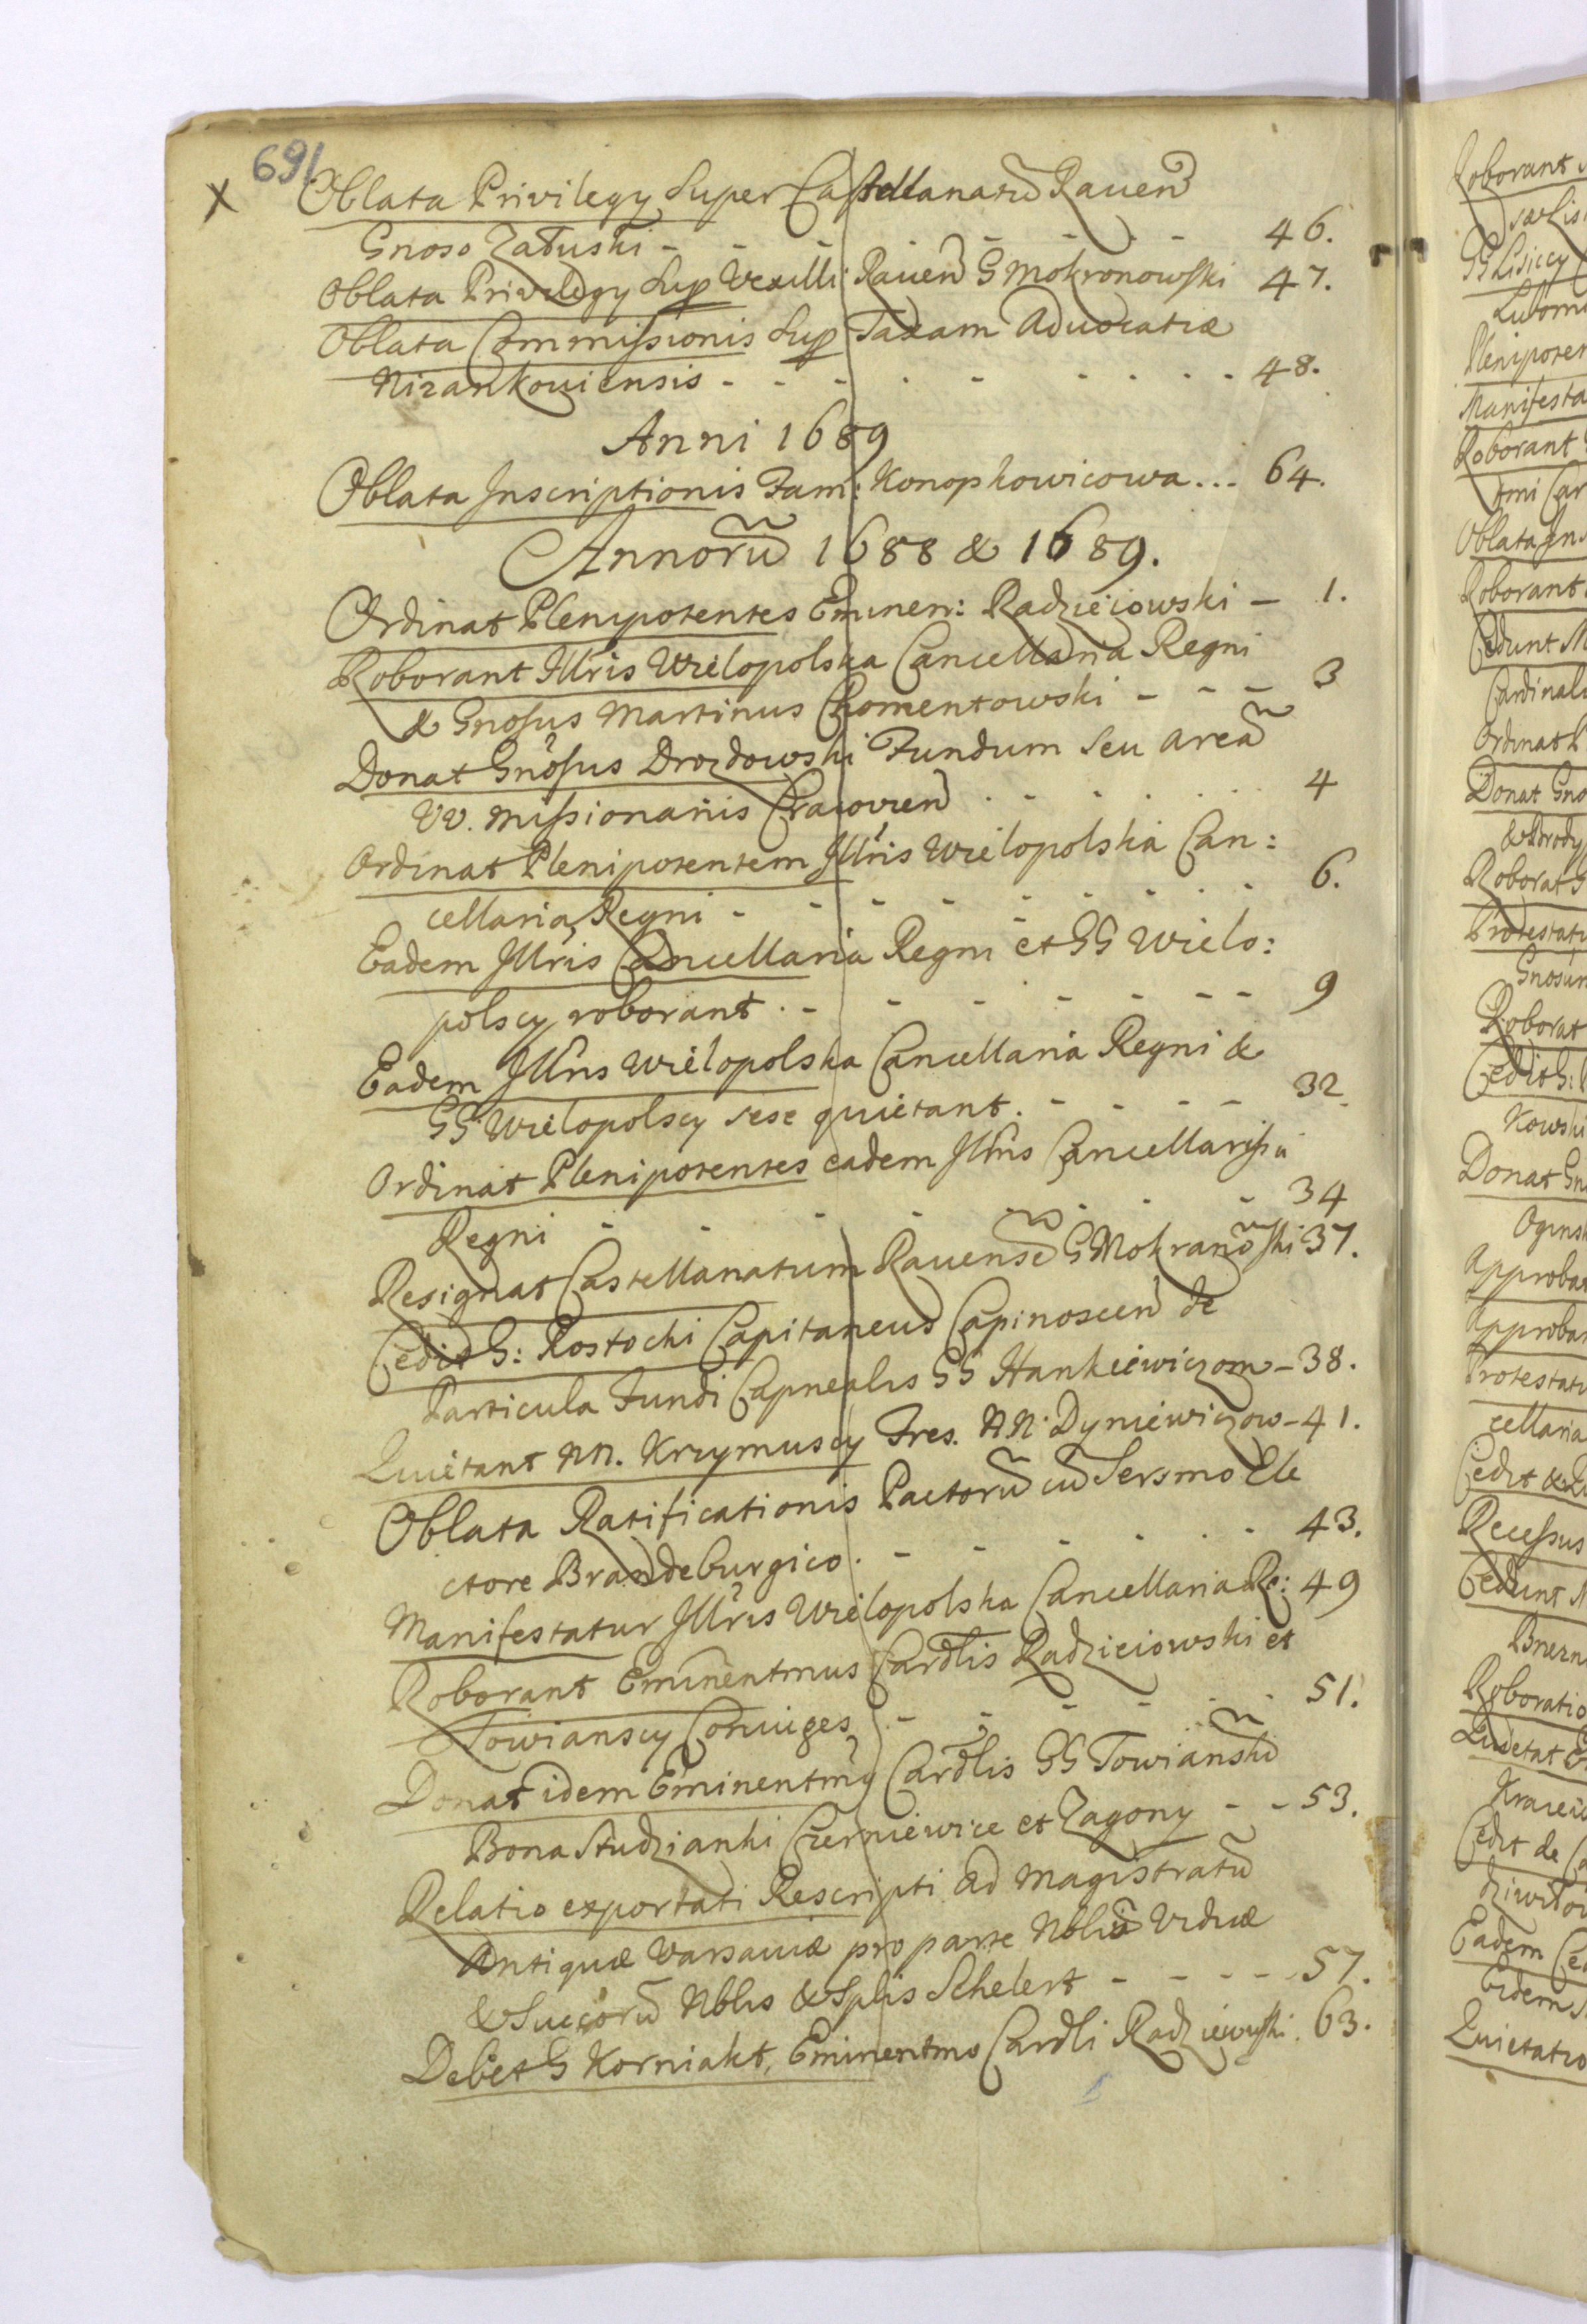 691
X Oblata Privilegy Super Castellanatũ Raven
Gnoso Załuski - - - - - - - 46.
Oblata Privilegy Sup Vexilli Raven G Mokronowski 47.
Oblata Commissionis Sup Taxam Advocatiæ
Nirankoviensis - - - - - - - - - 48.
Anni 1689
Oblata Inscriptionis Fam: Konopkowicowa ... 64.
Annorũ 1688 & 1689.
Ordinat Plenipotentes Eminen: Radzieiowski - 1.
Roborant Illris Wielopolska Cancellaria Regni
& Gnosus Martinus Chomentowski - - - 3
Donat Gnosus Drozdowski Fundum seu areã
VV. Missionariis Cracovien . - - - - . . . 4
Ordinat Plenipotentem Illris Wielopolska Can:
cellaria Regni - - - - - - - . . - 6.
Eadem Illris Cancellaria Regni et GG Wielo:
polscy roborant . - - - - - - - - 9
Eadem Illris Wielopolska Cancellaria Regni &
GG Wielopolscy sese quietant . - - - - 32.
Ordinat Plenipotentes eadem Illris Cancellarissa
Regni - - - - - - - - 34
Resignat Castellanatum Ravensẽ G Mokranoski 37.
Cedit G: Rostocki Capitaneus Capinoscen de
Particula Fundi Capnealis GG Hankiewiczom - 38.
Quietant NN. Krzymuscy Fres. NN. Dyniewiczow - 41.
Oblata Ratificationis Pactorũ cũ Sersmo Ele
ctore Brandeburgico . - - - - . . - 43.
Manifestatur Illris Wielopolska Cancellaria Re: 49
Roborant Eminentmus Cardlis Radzieiowski et
Towianscy Coniuges . - - - - . . 51.
Donat idem Eminentmy Cardlis GG Towianski
Bona Studzianki Czerniewice et Zagony - - 53.
Relatio exportati Rescripti ad Magistratũ
Antiquæ Varsaviæ pro parte Nblis Viduæ
& Succorũ Nblis & Splis Schelert - - - - 57.
Debet G Korniakt, Eminentmo Cardli Radzieiowski . 63.
Roborant
GG Lisiccy
Lubom
Plenipoten
Manifesta
Roborant
tmi Car
Oblata Ins
Roborant
Cedunt M
Cardinali
Ordinat P
Donat Gno
Roborat G
Protestatu
Gnosũm
Roborat
Cedit G:
Kowski
Donat Gn
Oginsk
Approbat
Approbat
Protestatu
cellaria
Cedit & Q
Recessus
Cedunt N
Roboratio
Quietat E
Cedit de Ca
Eadem Ce
Eidem
Quietatio